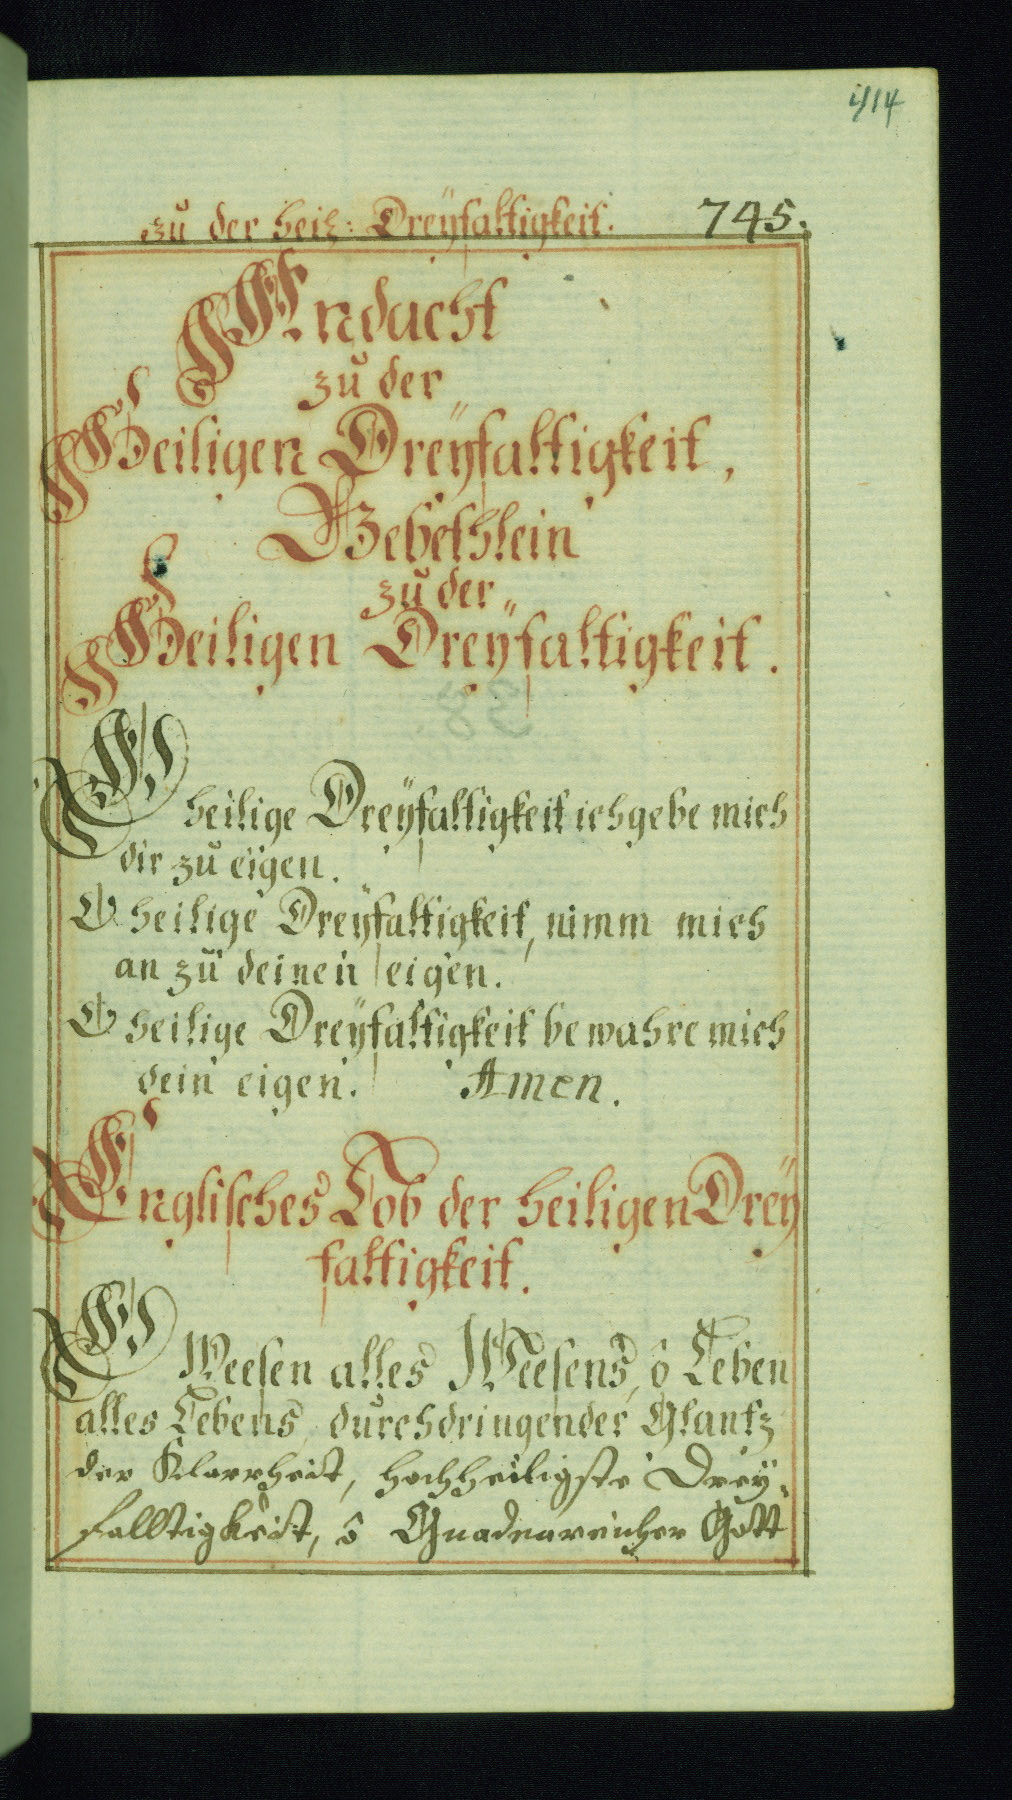 414
zu der Heil: Dreÿfaltigkeit. 745.
Andacht
zu der
Heiligen Dreÿfaltigkeit,
Gebethlein
zu der
Heiligen Dreÿfaltigkeit.
O heilige Dreÿfaltigkeit ich gebe mich
dir zu eigen.
O heilige Dreÿfaltigkeit, nimm mich
an zu deinen eigen.
O heilige Dreÿfaltigkeit bewahre mich
dein eigen. Amen.
Englisches Lob der heiligen Dreÿ
faltigkeit.
O Weesen alles Weesens, ô Leben
alles Lebens, durchdringender Glantz
der Klarrheit, hochheiligste Dreÿ,
falltigkeit, ô Gnadenreicher Gott